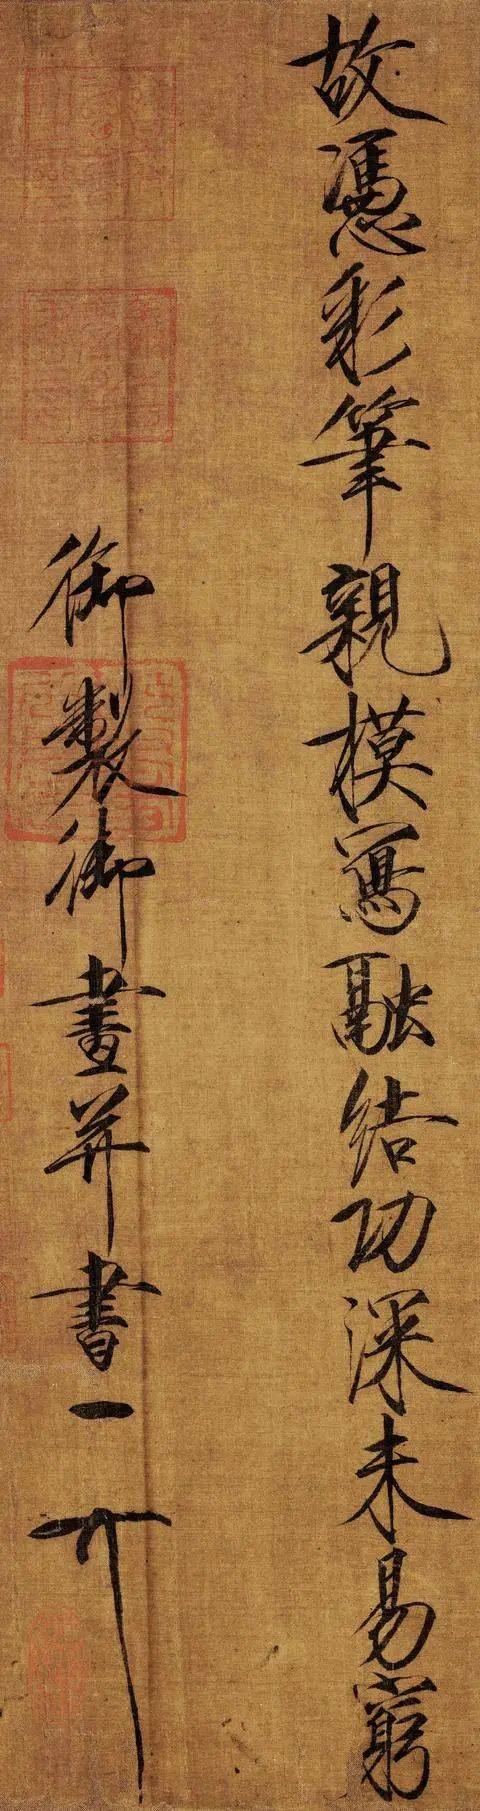 故憑彩筆親模寫融結功深未易窮
御製御畫并書